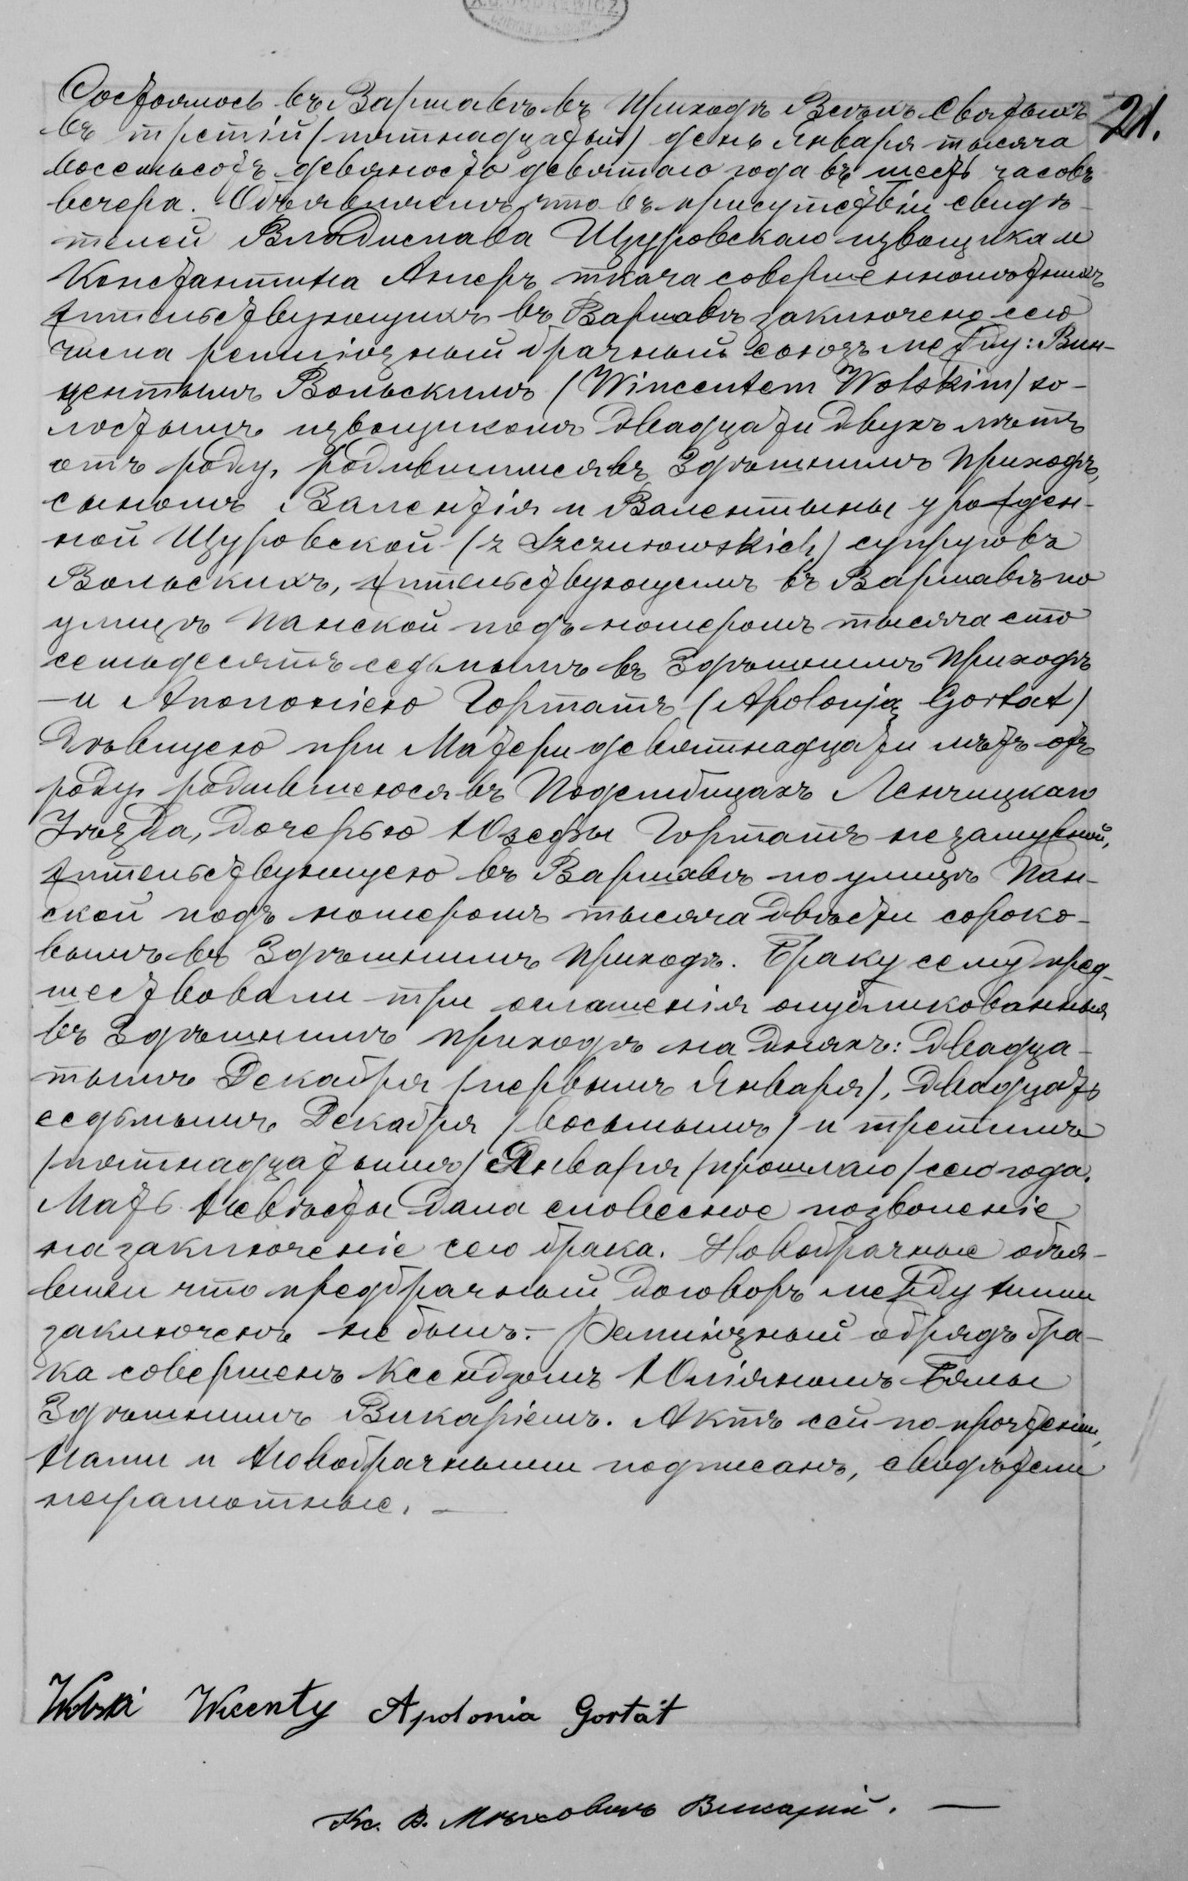 21.
Состоялось въ Варшавѣ въ приходѣ Всѣхъ Святыхъ
въ третій (пятнадцатый) день Января тысяча
восемьсотъ девяносто девятаго года въ шесть часовъ
вечера. Объявляемъ, что въ присутствіи свидѣ-
телей Владислава Щуровскаго извощика и
Константина Анеръ ткача совершеннолѣтнихъ
жительствующихъ въ Варшавѣ заключено сего
числа религіозный брачный союзъ между: Вин-
центымъ Вольскимъ (Wincentem Wolskim) хо-
лостымъ извощикомъ двадцати двухъ лѣтъ
отъ роду, родившимся въ здѣшнимъ приходѣ,
сыномъ Валентія и Валентыны урожден-
ной Щуровской (z Szczurowskich) супруговъ
Вольскихъ, жительствующимъ въ Варшавѣ по
улицѣ Панской подъ номеромъ тысяча сто
семьдесятъ седьмымъ въ здѣшнимъ приходѣ
— и Аполоніею Гортатъ (Apolonją Gortat)
дѣвицею при матери девятнадцати лѣтъ отъ
роду, родившеюся въ Подембицахъ Ленчицкаго
Уѣзда, дочерью Юзефы Гортатъ незамужной,
жительствующею въ Варшавѣ по улицѣ Пан-
ской подъ номеромъ тысяча двѣсти сороко-
вымъ въ здѣшнимъ приходѣ. Браку сему пред-
шествовали три оглашенія опубликованныя
въ здѣшнимъ приходѣ на дняхъ: двадца-
тымъ Декабря (первымъ Января), двадцать
седьмымъ Декабря (восьмымъ) и третимъ
(пятнадцатымъ) Января (прошлаго) сего года.
Мать невѣсты дала словесное позволеніе
на заключеніе сего брака. Новобрачные объя-
вили что предбрачный договоръ между ними
заключенъ не былъ. — Религіозный обрядъ бра-
ка совершенъ Ксендзомъ Юліяномъ Бялы
здѣшнимъ Викаріемъ. Актъ сей по прочтеніи,
нами и новобрачными подписанъ, свидѣтели
неграмотные. —
Wolski Wicenty Apolonia Gortat
Кс. В. Викарій. —